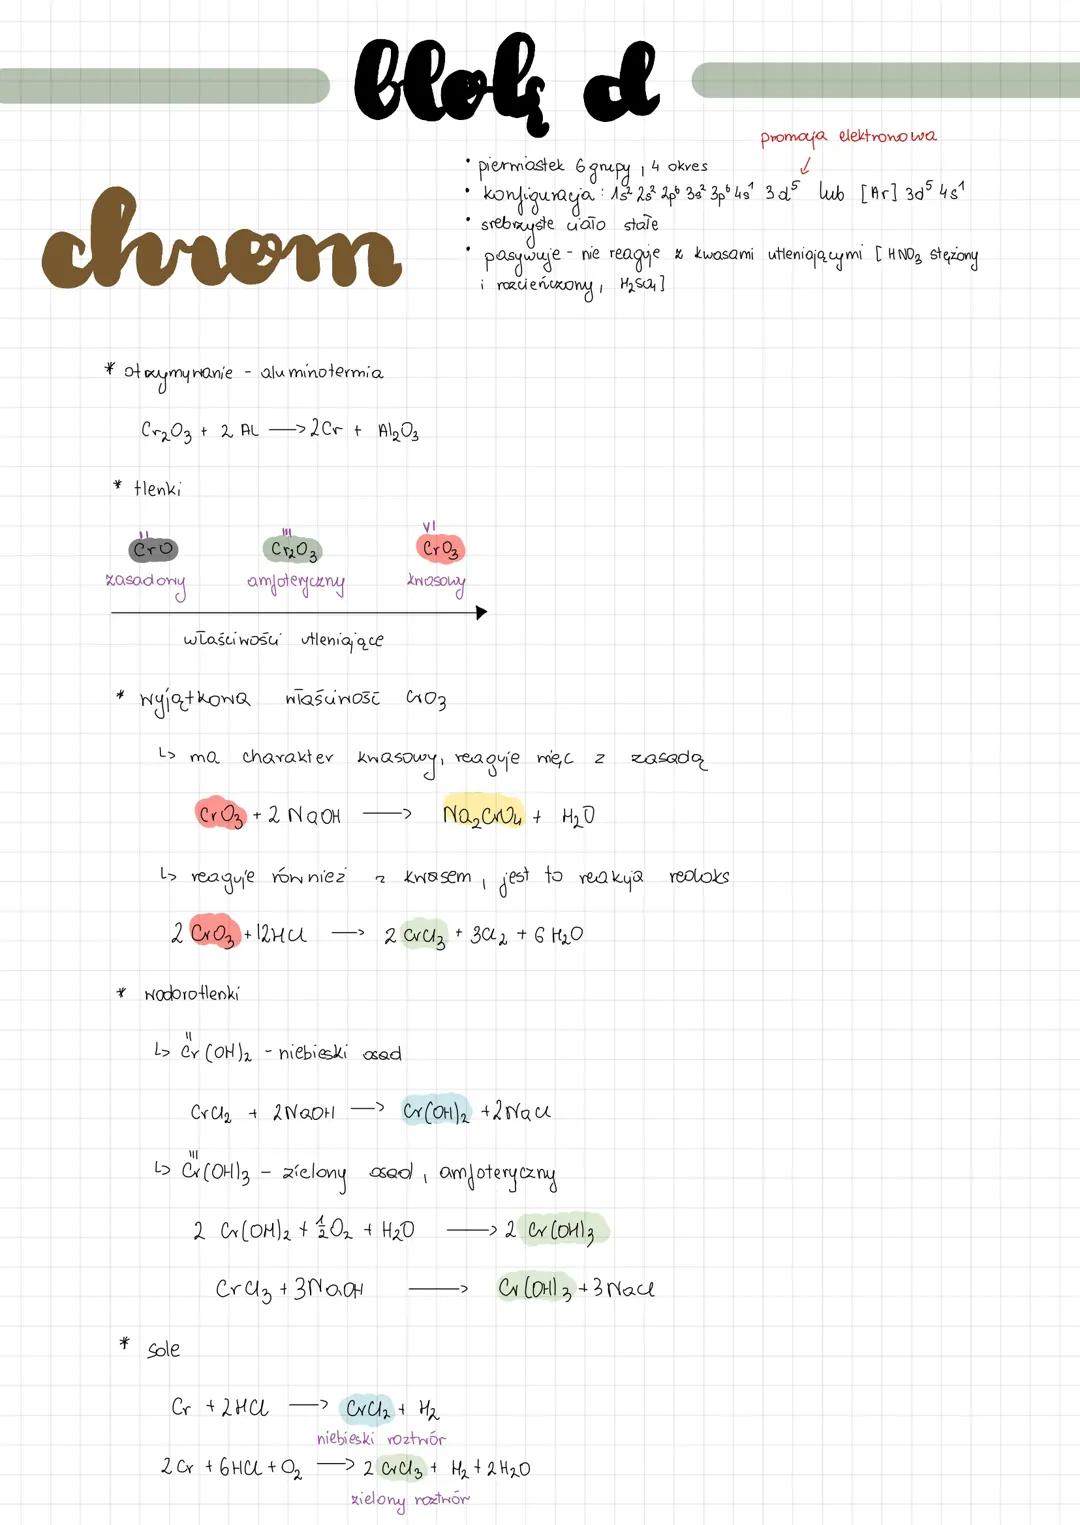 blok d
chrom
promocja elektronowa
• pierwiastek 6 grupy, 4 okres
• konfiguracja: 1s² 2s² 2p⁶ 3s² 3p⁶ 4s¹ 3d⁵ lub [Ar] 3d⁵ 4s¹
• srebrzyste ciało stałe
• pasywuje - nie reaguje z kwasami utleniającymi [HNO₃ stężony
i rozcieńczony, H₂SO₄]
* otrzymywanie - aluminotermia
Cr₂O₃ + 2 Al ⟶ 2Cr + Al₂O₃
* tlenki
II III VI
CrO Cr₂O₃ CrO₃
zasadowy amfoteryczny kwasowy
właściwości utleniające
* wyjątkowa właściwość CrO₃
↳ ma charakter kwasowy, reaguje więc z zasadą
CrO₃ + 2 NaOH ⟶ Na₂CrO₄ + H₂O
↳ reaguje również z kwasem, jest to reakcja redoks
2 CrO₃ + 12HCl ⟶ 2 CrCl₃ + 3Cl₂ + 6 H₂O
* wodorotlenki
II
↳ Cr(OH)₂ - niebieski osad
CrCl₂ + 2NaOH ⟶ Cr(OH)₂ + 2NaCl
III
↳ Cr(OH)₃ - zielony osad, amfoteryczny
2 Cr(OH)₂ + ½O₂ + H₂O ⟶ 2 Cr(OH)₃
CrCl₃ + 3NaOH ⟶ Cr(OH)₃ + 3NaCl
* sole
Cr + 2HCl ⟶ CrCl₂ + H₂
niebieski roztwór
2Cr + 6HCl + O₂ ⟶ 2 CrCl₃ + H₂ + 2H₂O
zielony roztwór